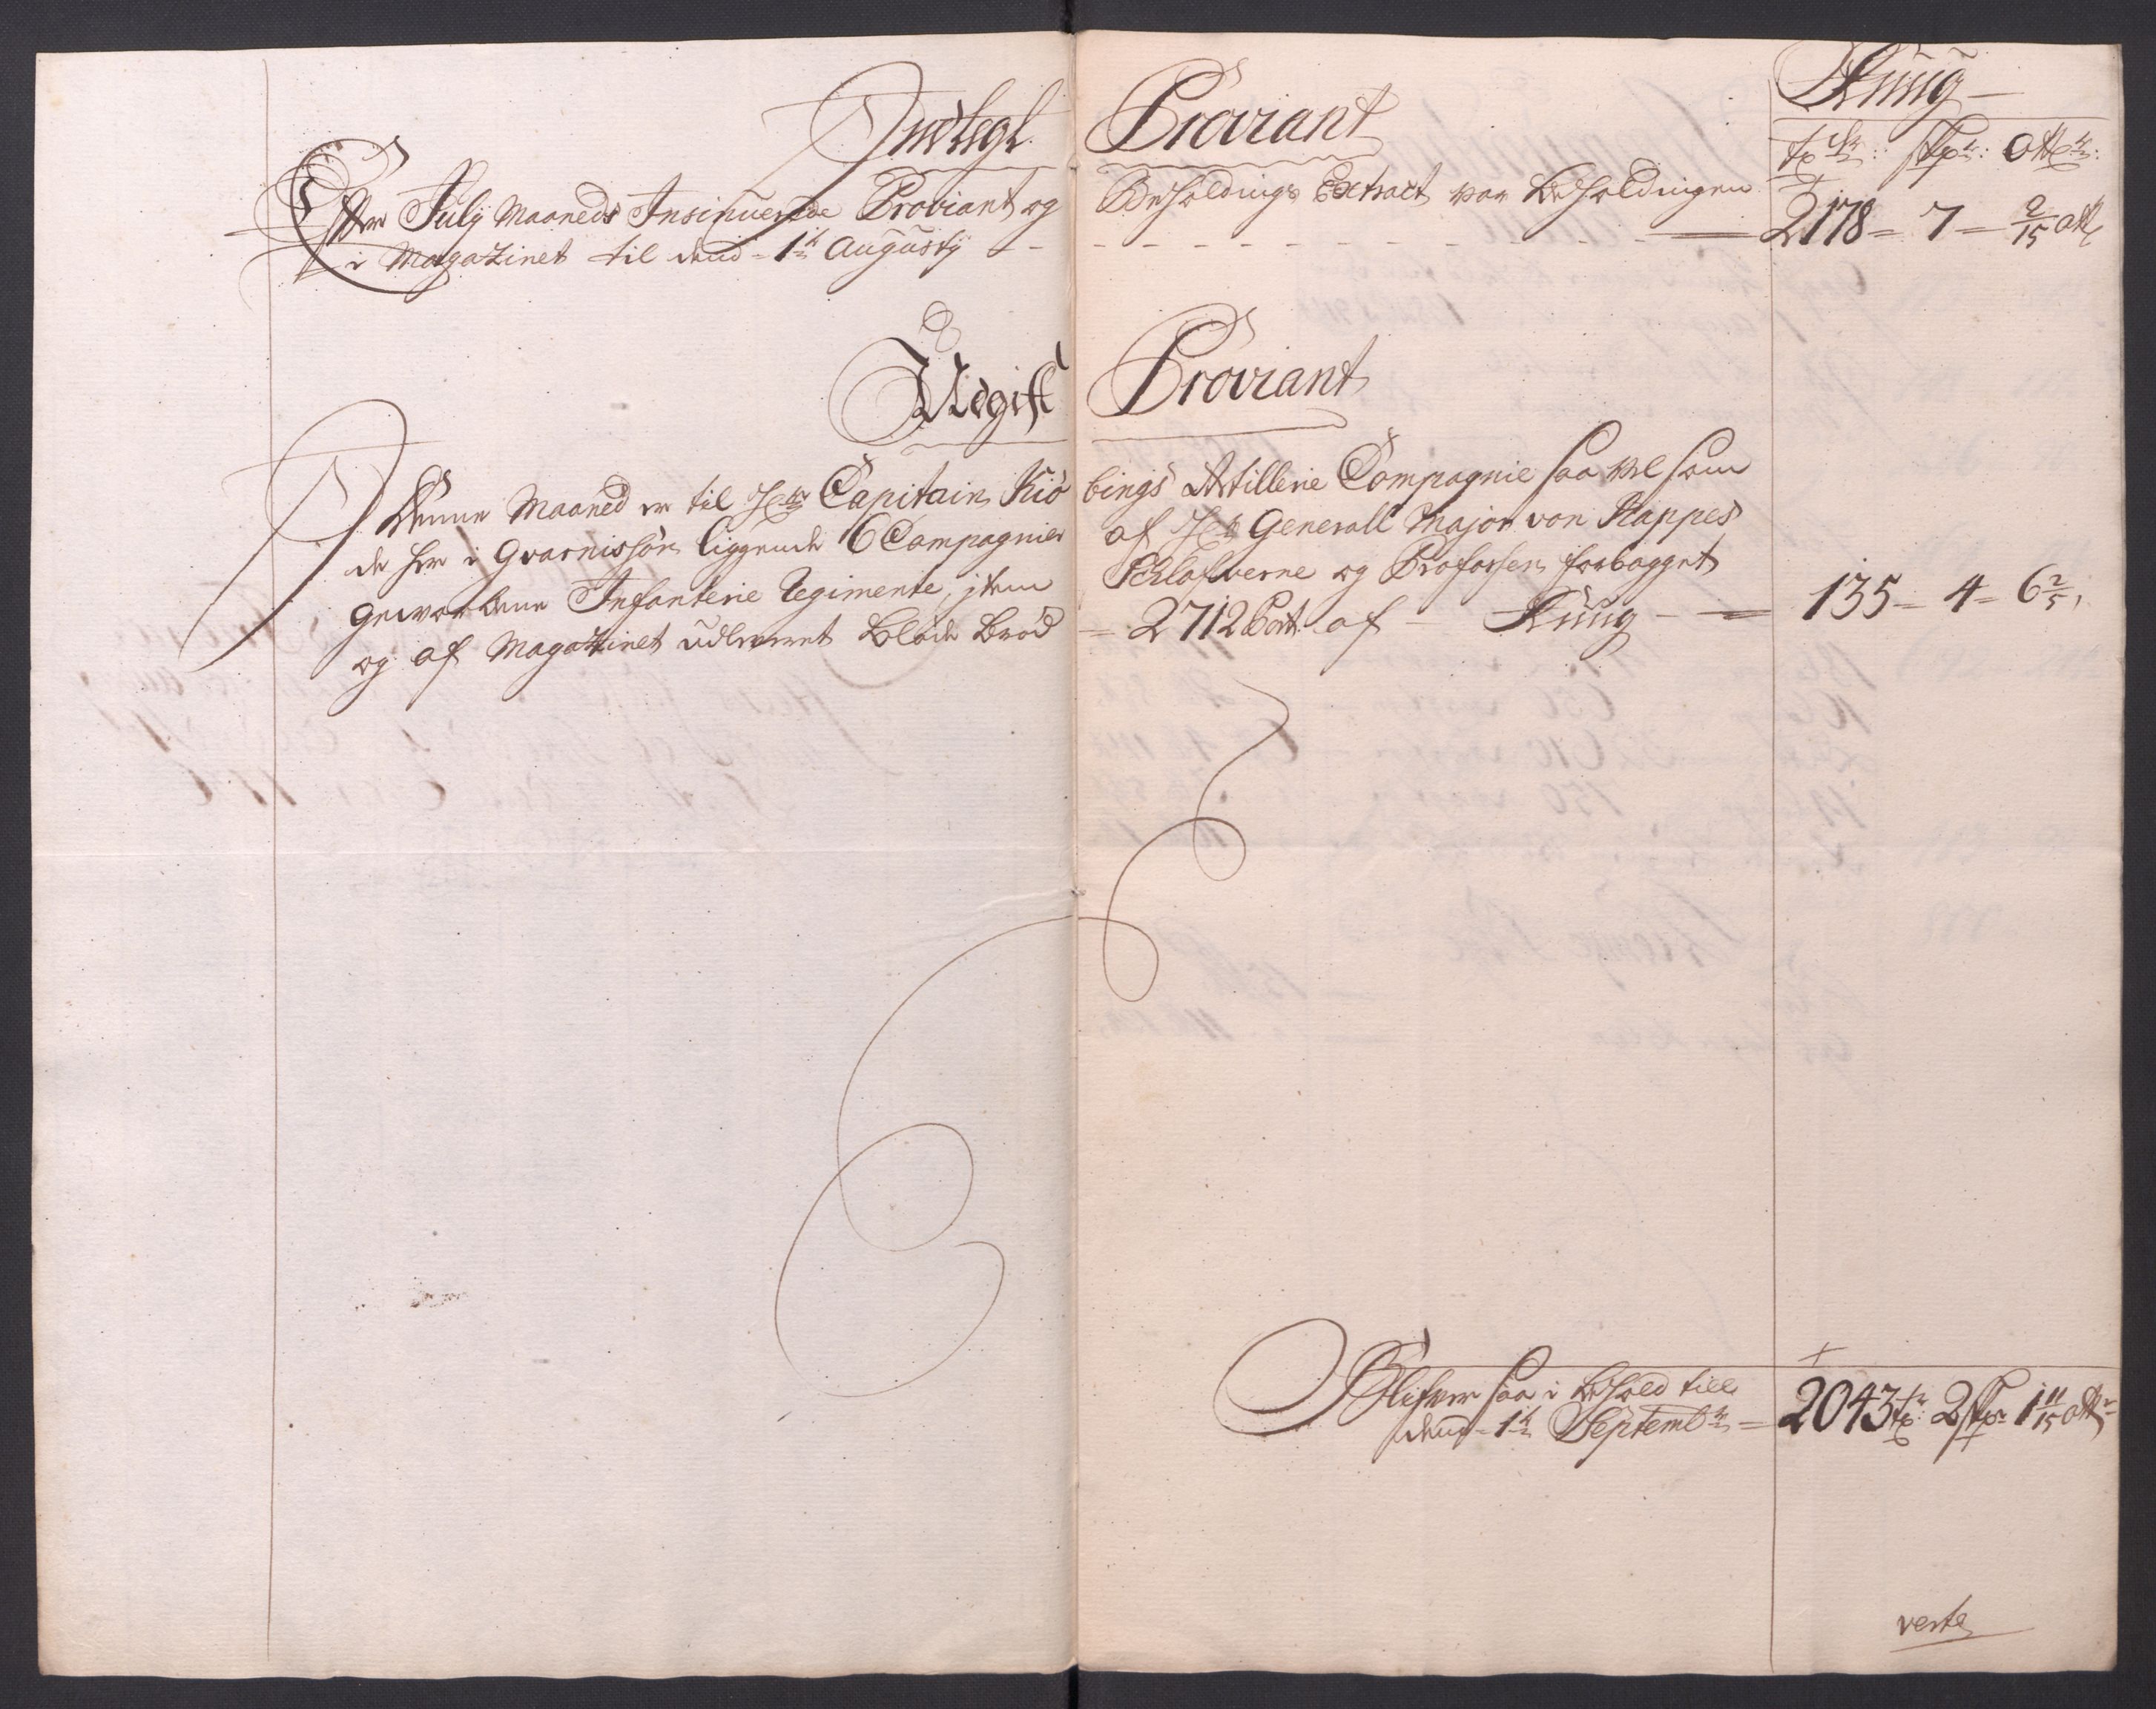 Indtegt Proviant
Rúúg
tr: skpr: Ottr:
Efter July Maaneds Insinuerede Proviant og Beholdings Extract var beholdningen
i Magazinet til dend 1te Augusty - 2178 - 7 - 2/15 ott
Udgift Proviant
Denne Maaned er til Hr: Capitain Kiöbings Artillerie Compagnie saa vel som
de her i Qvarnisson liggende 6 Compagnier af Hr: Generall Major von Kappes
gevorbene Infanterie Regimente, jtem Schlafverne og Profossen forbagget
og af Magazinet udleveret blöde bröd - 2712 Port: af - Rúúg - 135 - 4 - 6 2/5
Blifver saa i behold till
dend 1te Septembr: = 2043 tr: 2 skpr 1 11/15 ottr
verte